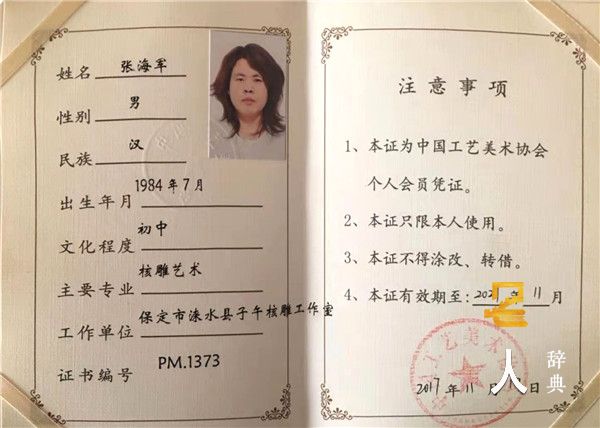 姓名 张海军
性别 男
民族 汉
出生年月 1984年7月
文化程度 初中
主要专业 核雕艺术
工作单位 保定市涞水县子午核雕工作室
证书编号 PM.1373
注意事项
1、本证为中国工艺美术协会
个人会员凭证。
2、本证只限本人使用。
3、本证不得涂改、转借。
4、本证有效期至:年11月
工艺美术
2017年11月日
人 辞典